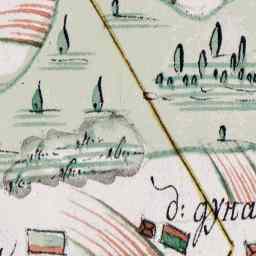 д: дуна